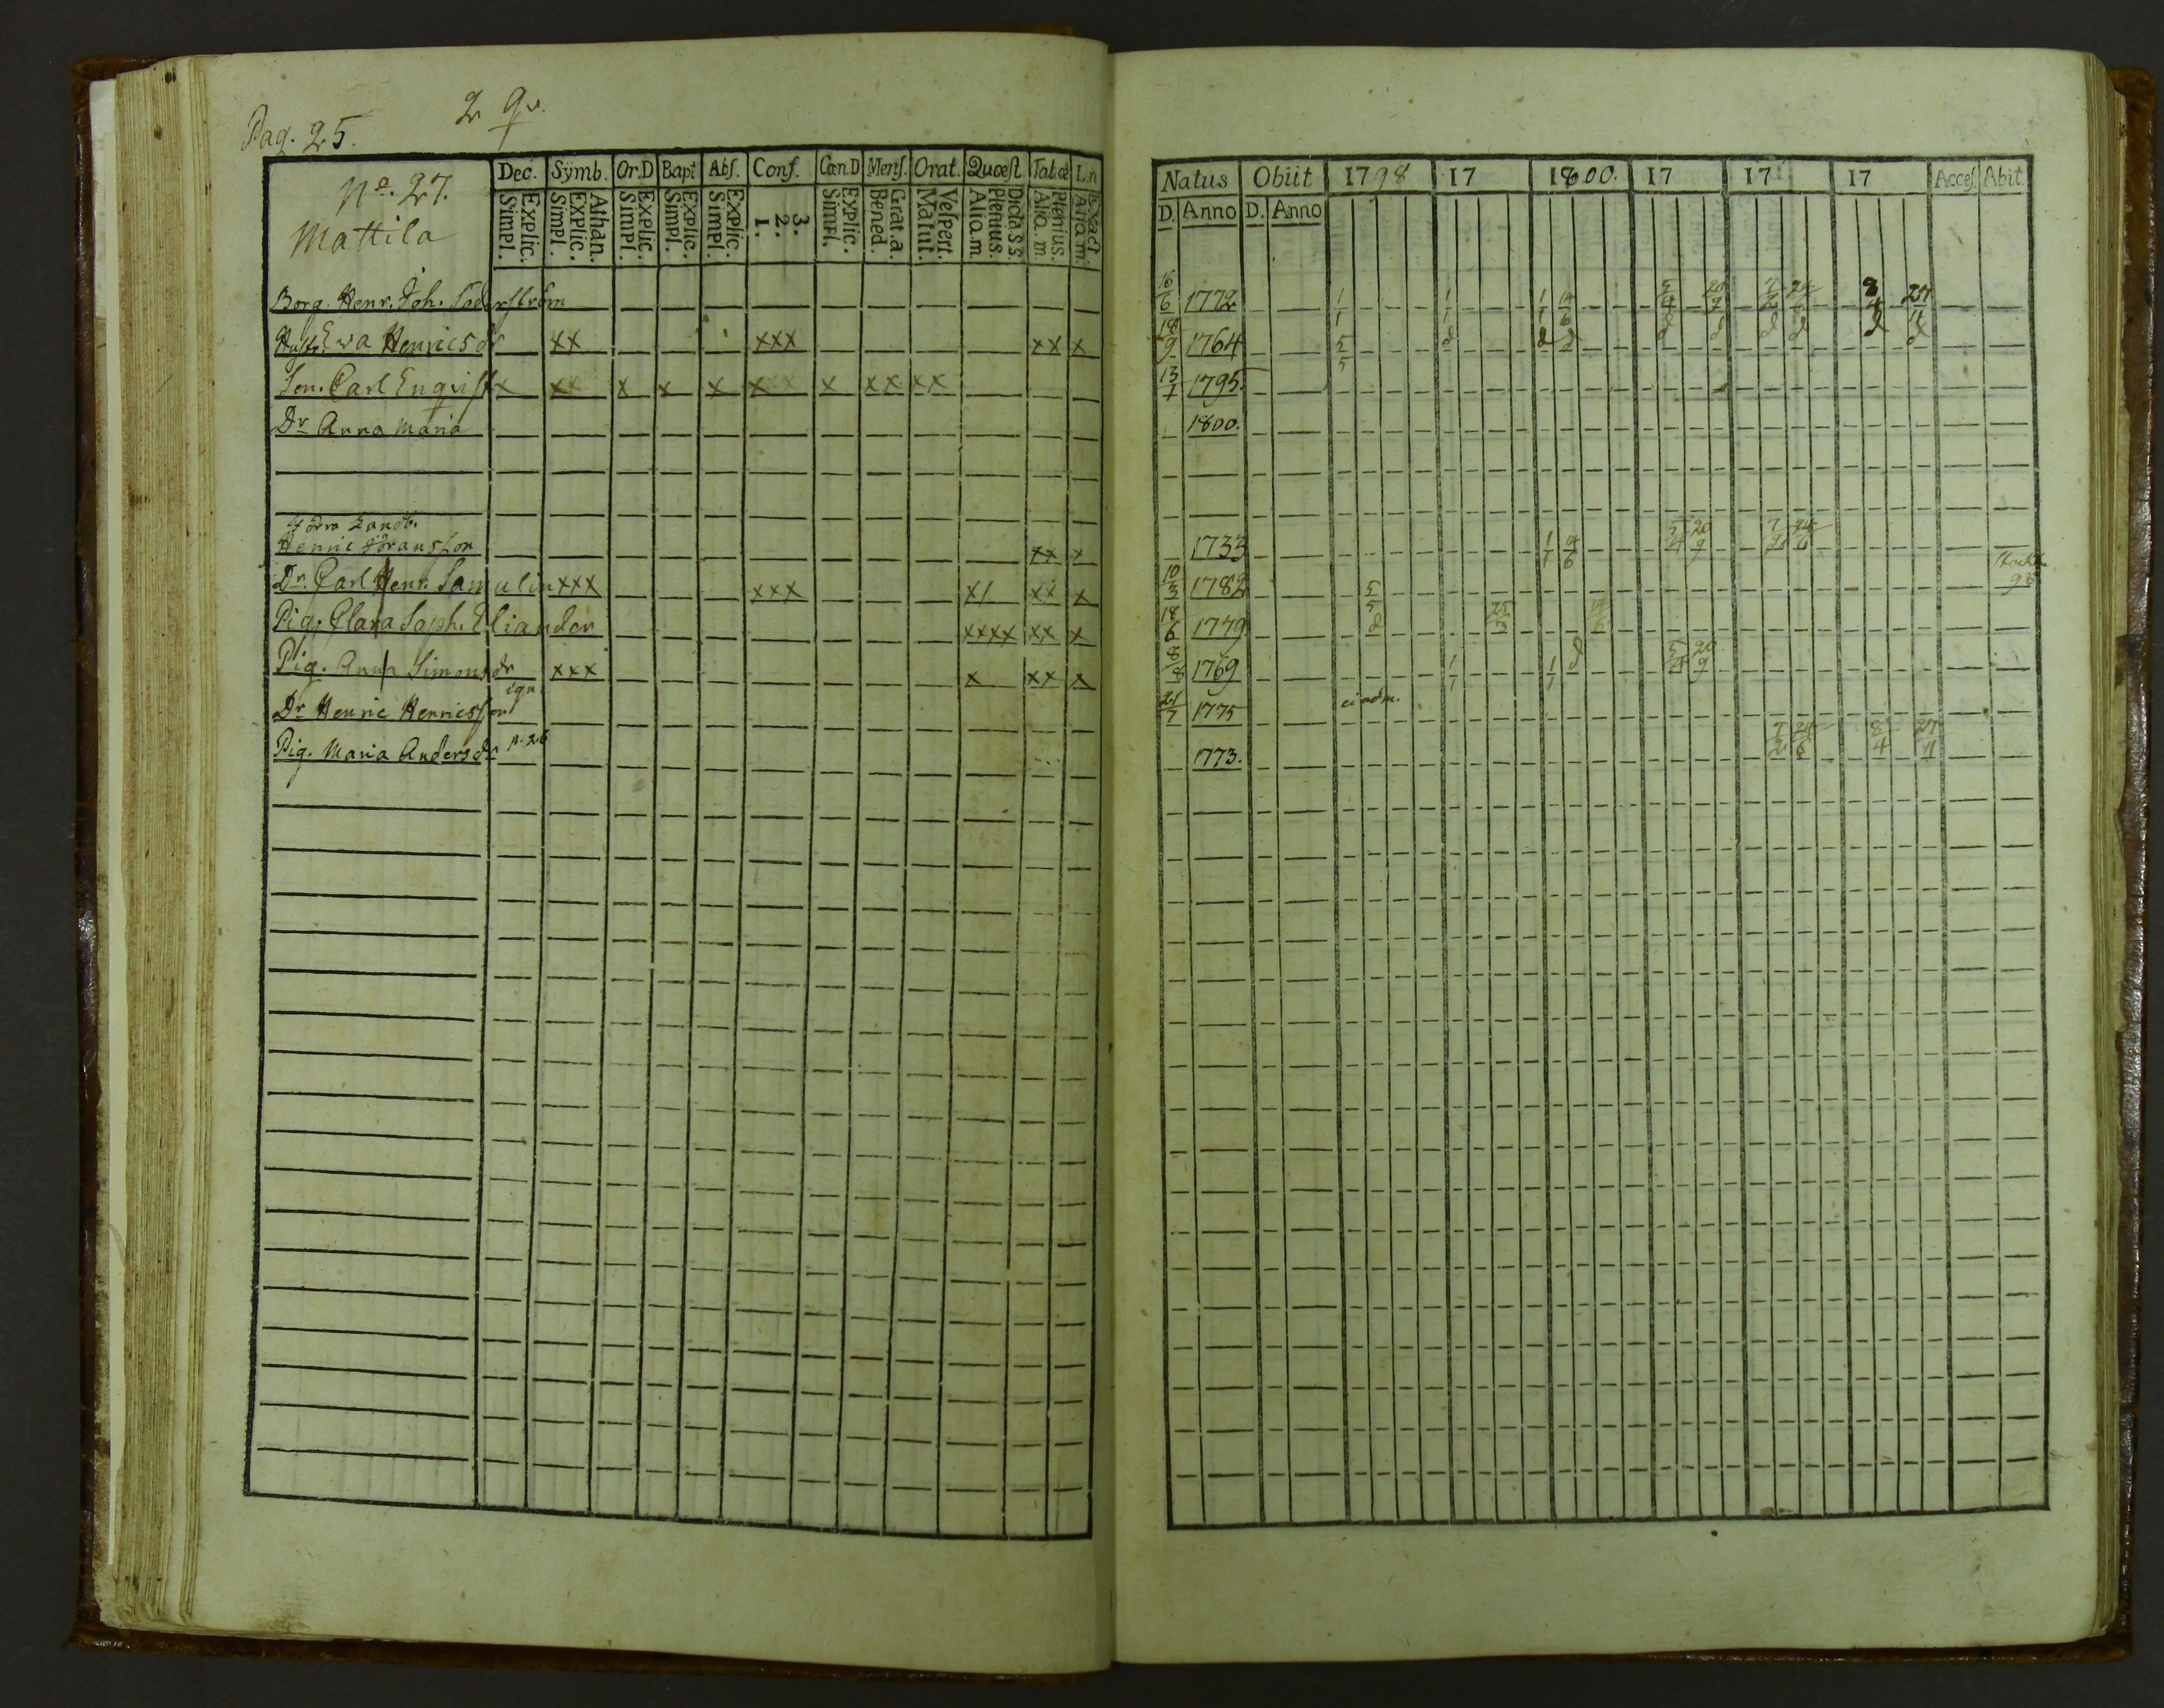 Pag. 25.
2 qv.
No. 27.
Mattila
Dec. Symb. Or.D Bapt Abs. Conf. Cœn.D Mens. Orat. Quæst. Tabæ L.n
Explic. Simpl. Athan. Explic. Simpl. Explic. Simpl. Explic. Simpl. Explic. Simpl. 3. 2. 1. Explic. Simpl. Grat.a. Bened. Vespert. Matut. Dicta S S. Plenius. Aliq.m Plenius. Aliq.m Exact. Aliq.m.
Natus Obiit 1798 17 1800. 17 17 17 Acces. Abit
D. Anno D. Anno
Borg. Henr. Joh. Söderström 16/6 1772 1/1 1/1 1/1 5/4 20/9 8/4 27/11
Hust. Ewa Henricsdr xx xxx xx x 18/9 1764 5/5 d d d d d d d d d
Son. Carl Enqvist x xx x x x x x xx xx 13/1 1795
Dr Anna Maria 1800.
Henric Göransson xx x 1733 1/1 5/4 20/9
Dr. Carl Henr. Samulin xxx xxx x/ xx x 10/3 1782 5/5 98
Pig. Clara Soph. Eliander xxxx xx x 18/6 1779 d 25/3
Pig. Anna Simonsdr xxx x xx x 8/8 1769 1/1 1/1 d 5/4 20/9
Dr Henric Henricsson 21/7 1775
Pig. Maria Andersdr p. 26 1773. 8/4 27/11